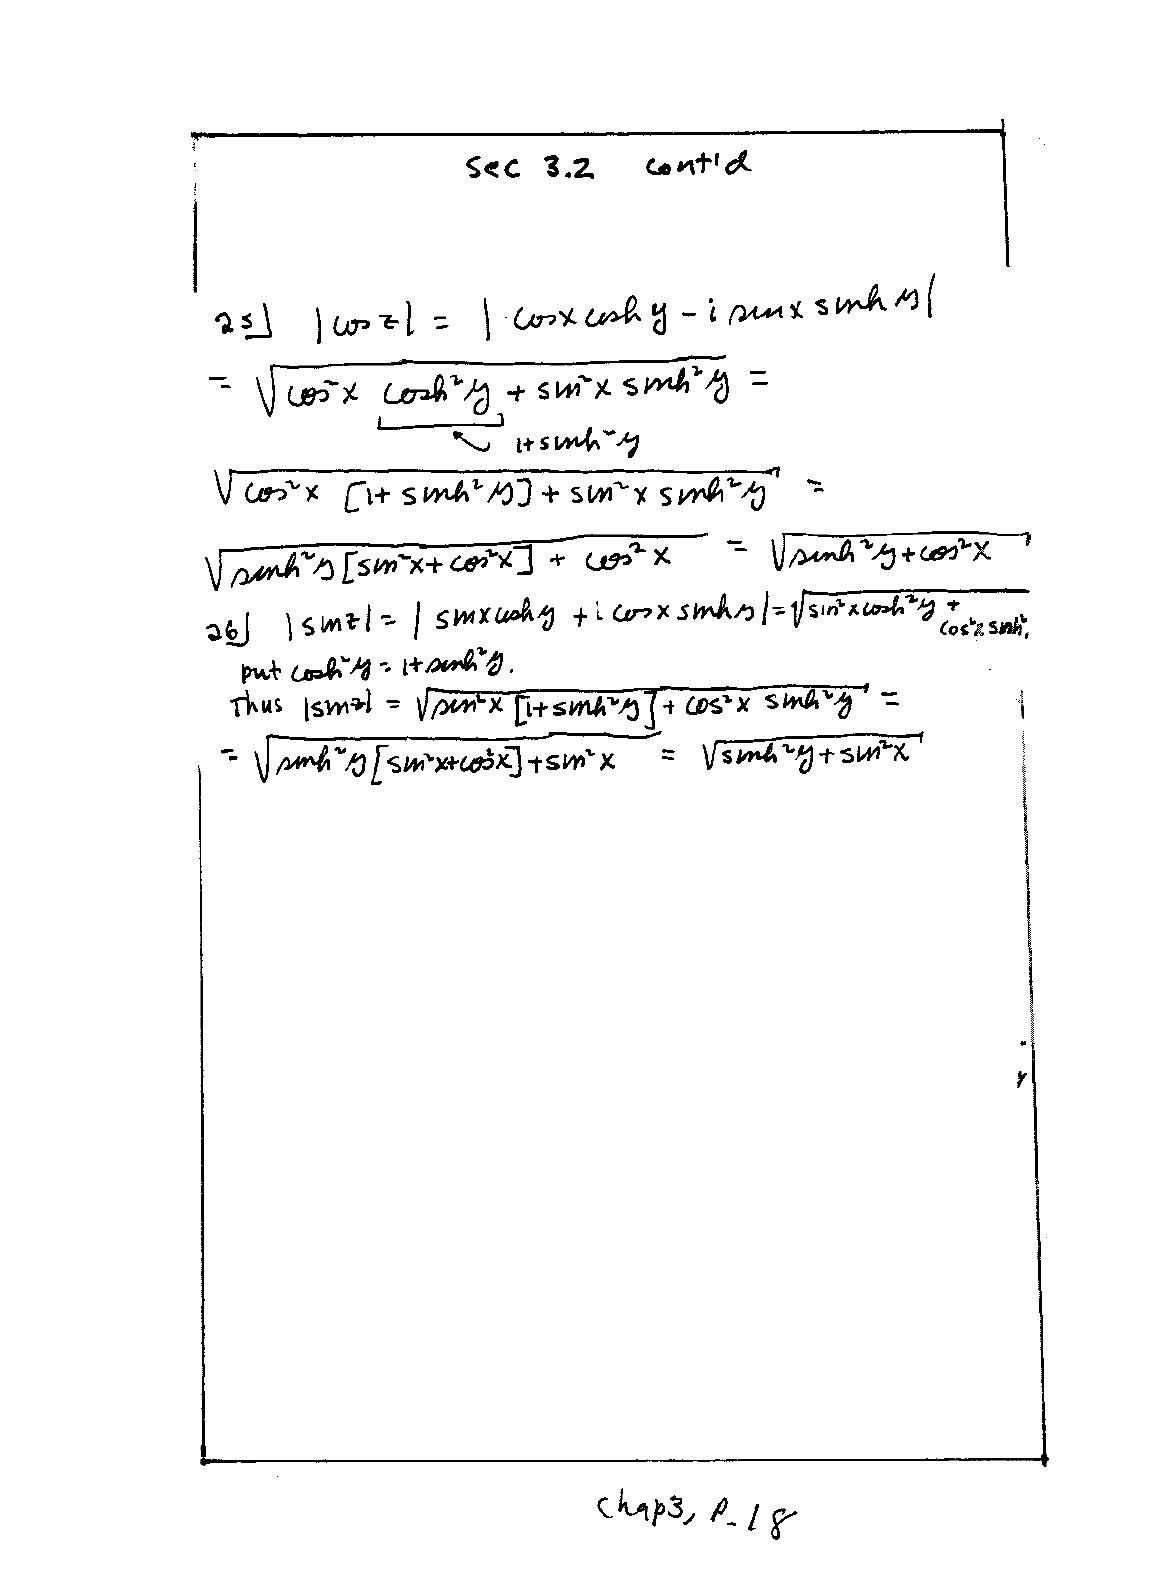 Sec 3.2 cont'd
25] |cos z| = | cosx cosh y - i sinx sinh y|
= √(cos²x cosh²y + sin²x sinh²y) =
1+sinh²y
√(cos²x [1+ sinh²y] + sin²x sinh²y) =
√(sinh²y [sin²x + cos²x] + cos²x) = √(sinh²y + cos²x)
26] |sinz| = | sinx cosh y + i cosx sinh y| = √(sin²x cosh²y +
cos²x sinh²
put cosh²y = 1+ sinh²y.
Thus |sinz| = √(sin²x [1+sinh²y] + cos²x sinh²y) =
= √(sinh²y [sin²x+cos²x] + sin²x) = √(sinh²y + sin²x)
Chap3, p-18